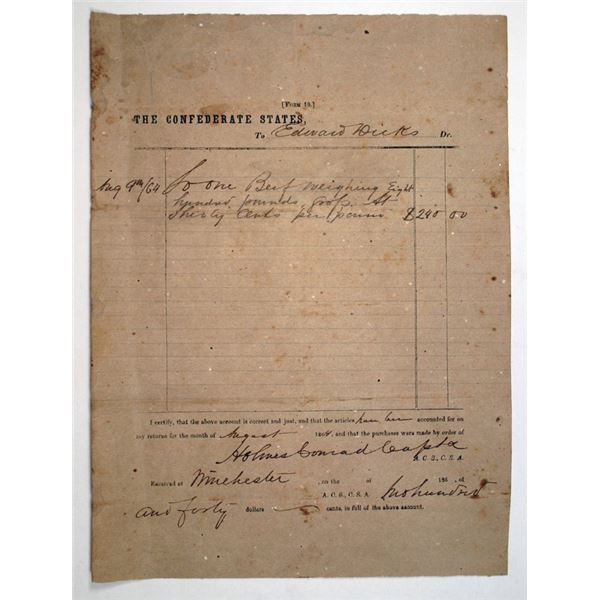 [Form 19.]
THE CONFEDERATE STATES,
To Edward Dicks Dr.
Aug 9th/64 To one Beef weighing Eight
hundred pounds, gross. At
thirty Cents per pound $240 00
I certify, that the above account is correct and just, and that the articles have been accounted for on
my returns for the month of August 1864, and that the purchases were made by order of
Holmes Conrad Capt &
A. C. S., C. S. A.
Received at Winchester , on the of 186 , of
A. C. S., C. S. A. two hundred
and forty dollars cents, in full of the above account.